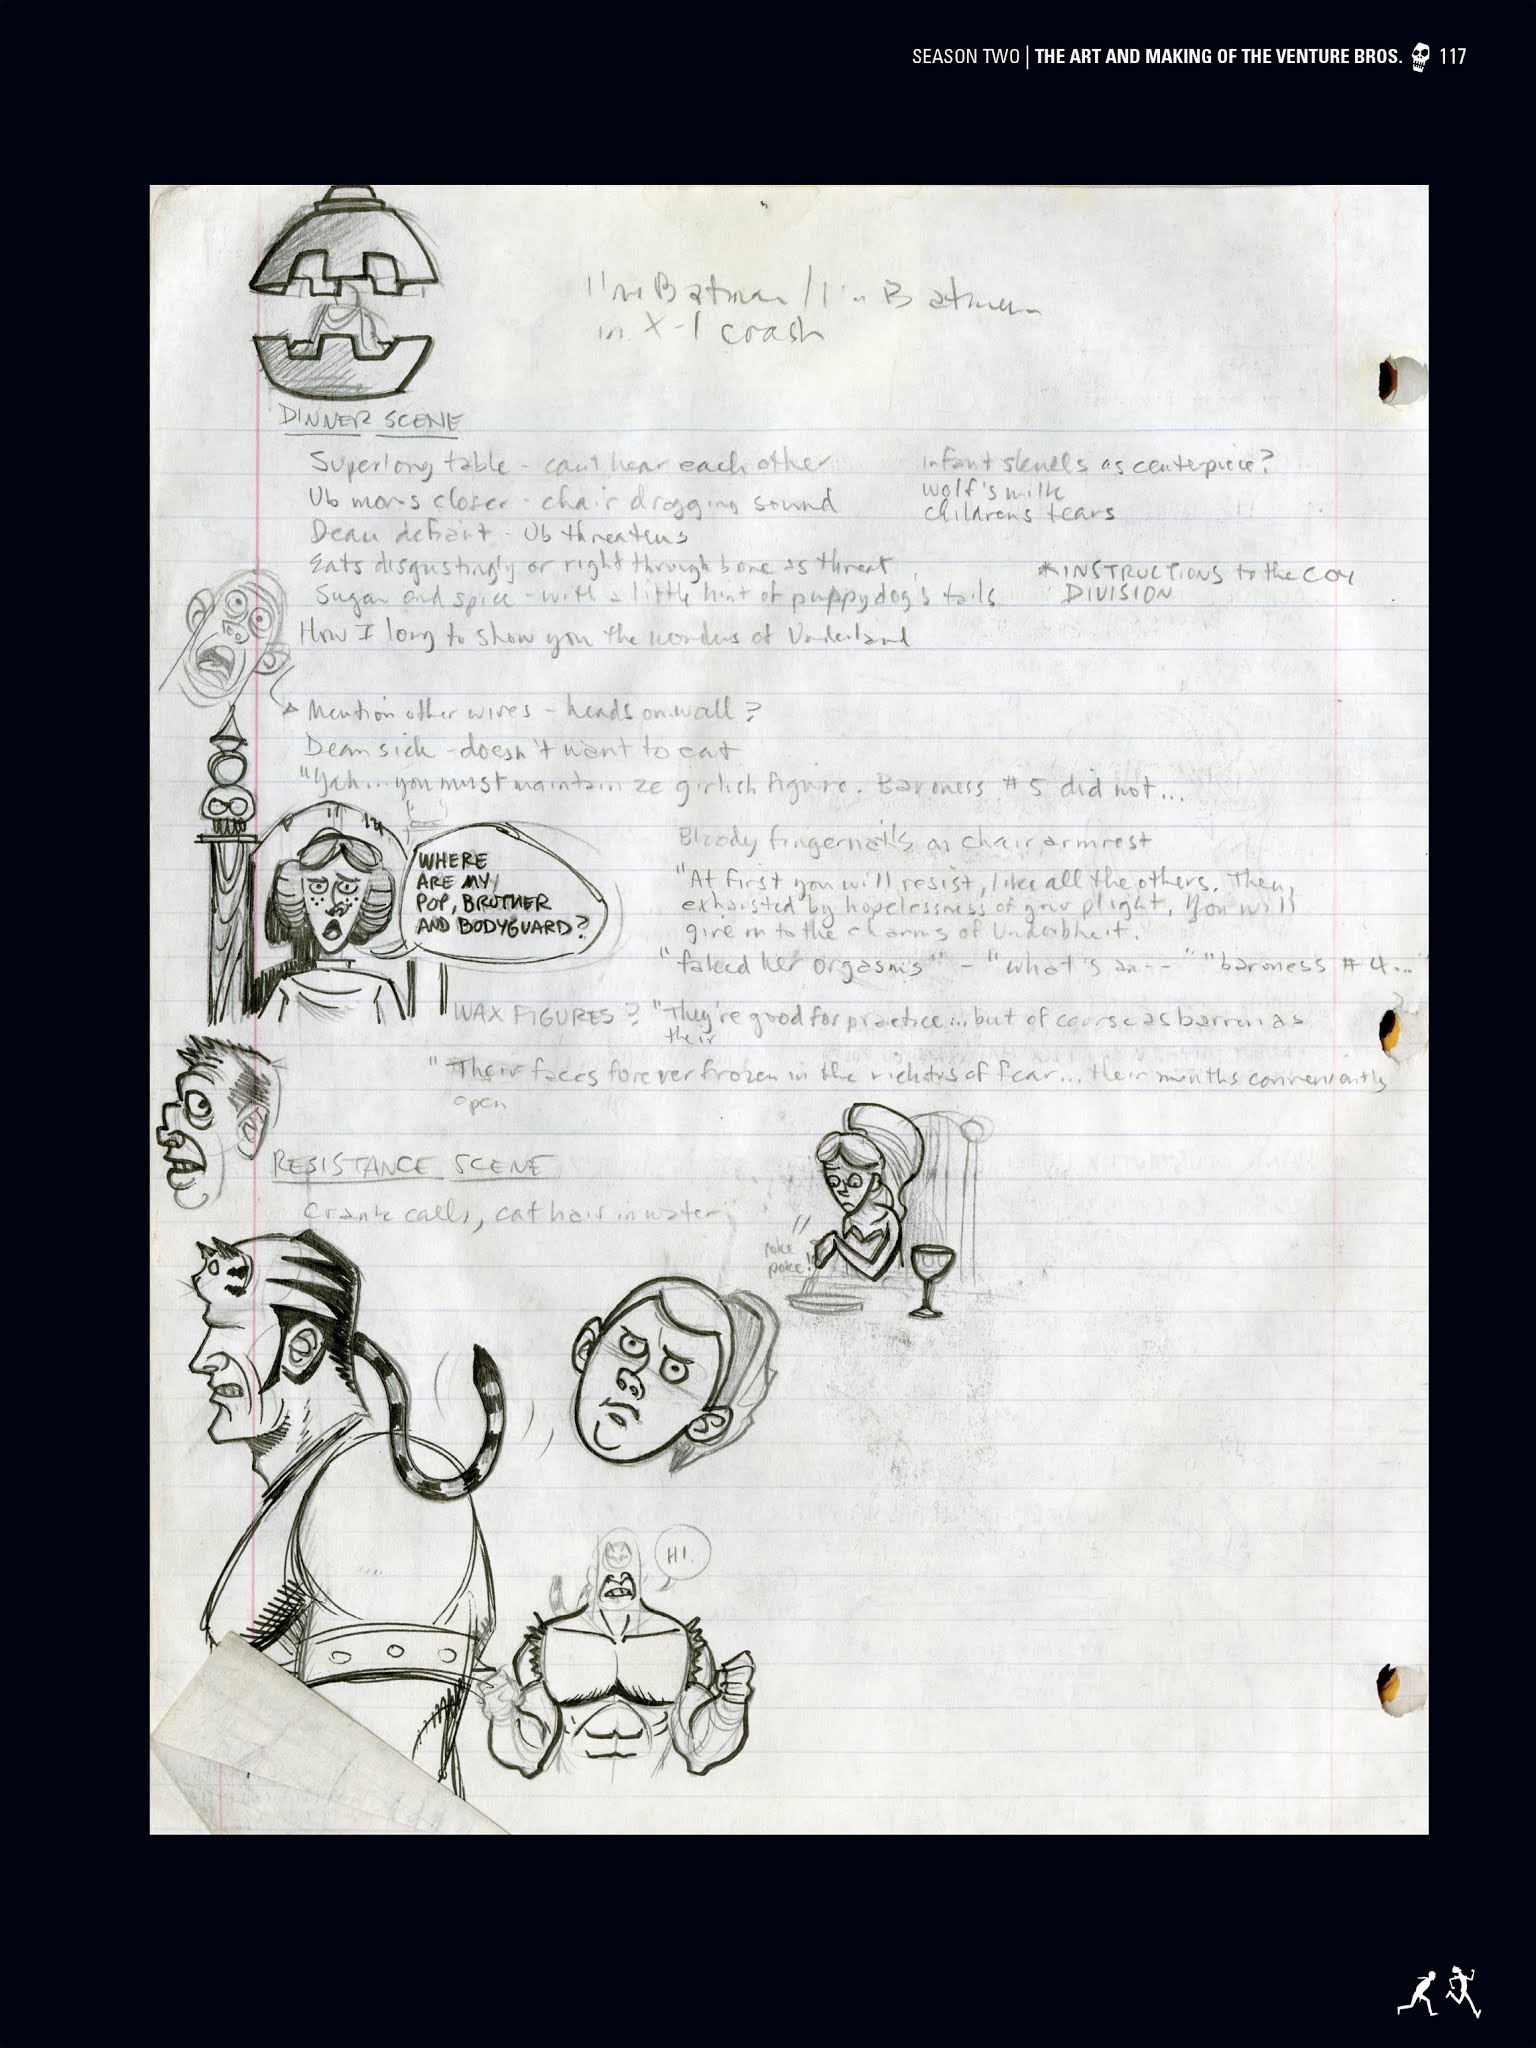 SEASON TWO | THE ART AND MAKING OF THE VENTURE BROS. 117
I'm Batman / I'm Batman
in X-1 crash
DINNER SCENE
Superlong table - can't hear each other
Ub moves closer - chair dragging sound
Dean defiant - Ub threatens
Eats disgustingly or right through bone as threat
Sugar and spice - with a little hint of puppydog's tails
How I long to show you the wonders of Underland
infant skulls as centerpiece?
wolf's milk
childrens tears
* INSTRUCTIONS to the COY
DIVISION
Mention other wives - heads on wall?
Dean sick - doesn't want to eat
"Yah... you must maintain ze girlish figure. Baroness #5 did not...
WHERE
ARE MY
POP, BROTHER
AND BODYGUARD?
Bloody fingernails on chair armrest
"At first you will resist, like all the others. Then,
exhausted by hopelessness of your plight, you will
give in to the charms of Underbheit.
"faked her orgasms" - "what's an--" "baroness #4..."
WAX FIGURES? "They're good for practice... but of course as barren as
their
"Their faces forever frozen in the of fear... their mouths conveniently
open
RESISTANCE SCENE
Crank calls, cat hair in water
poke
poke!
HI.